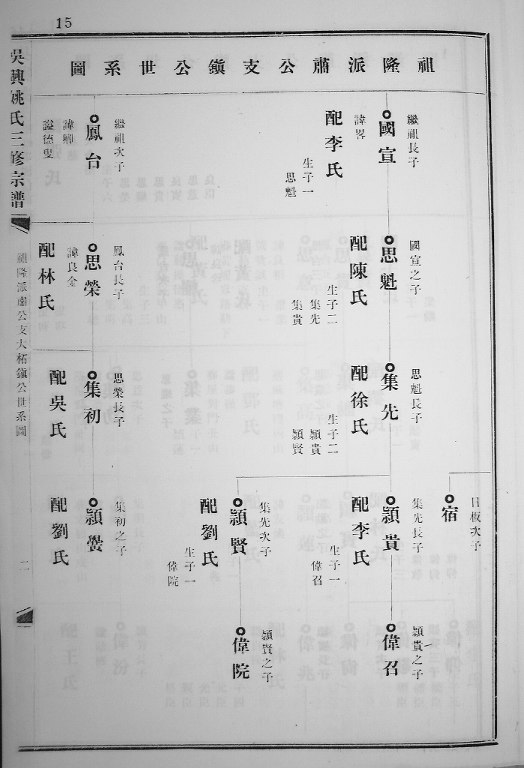 15
祖隆派肅公支鎮公世系圖
吳興姚氏三修宗譜
祖隆派肅公支大柘鎮公世系圖
二
繼祖長子
國宣
諱畧
配李氏
生子一
思魁
繼祖次子
鳳台
諱卿
諡德叟
國宣之子
思魁
配陳氏
生子二
集先
集貴
鳳台長子
思榮
諱良金
配林氏
思魁長子
集先
配徐氏
生子二
頴貴
頴賢
思榮長子
集初
配吳氏
日板次子
宿
集先長子
頴貴
配李氏
生子一
偉召
集先次子
頴賢
配劉氏
生子一
偉院
集初之子
頴
配劉氏
頴貴之子
偉召
頴賢之子
偉院